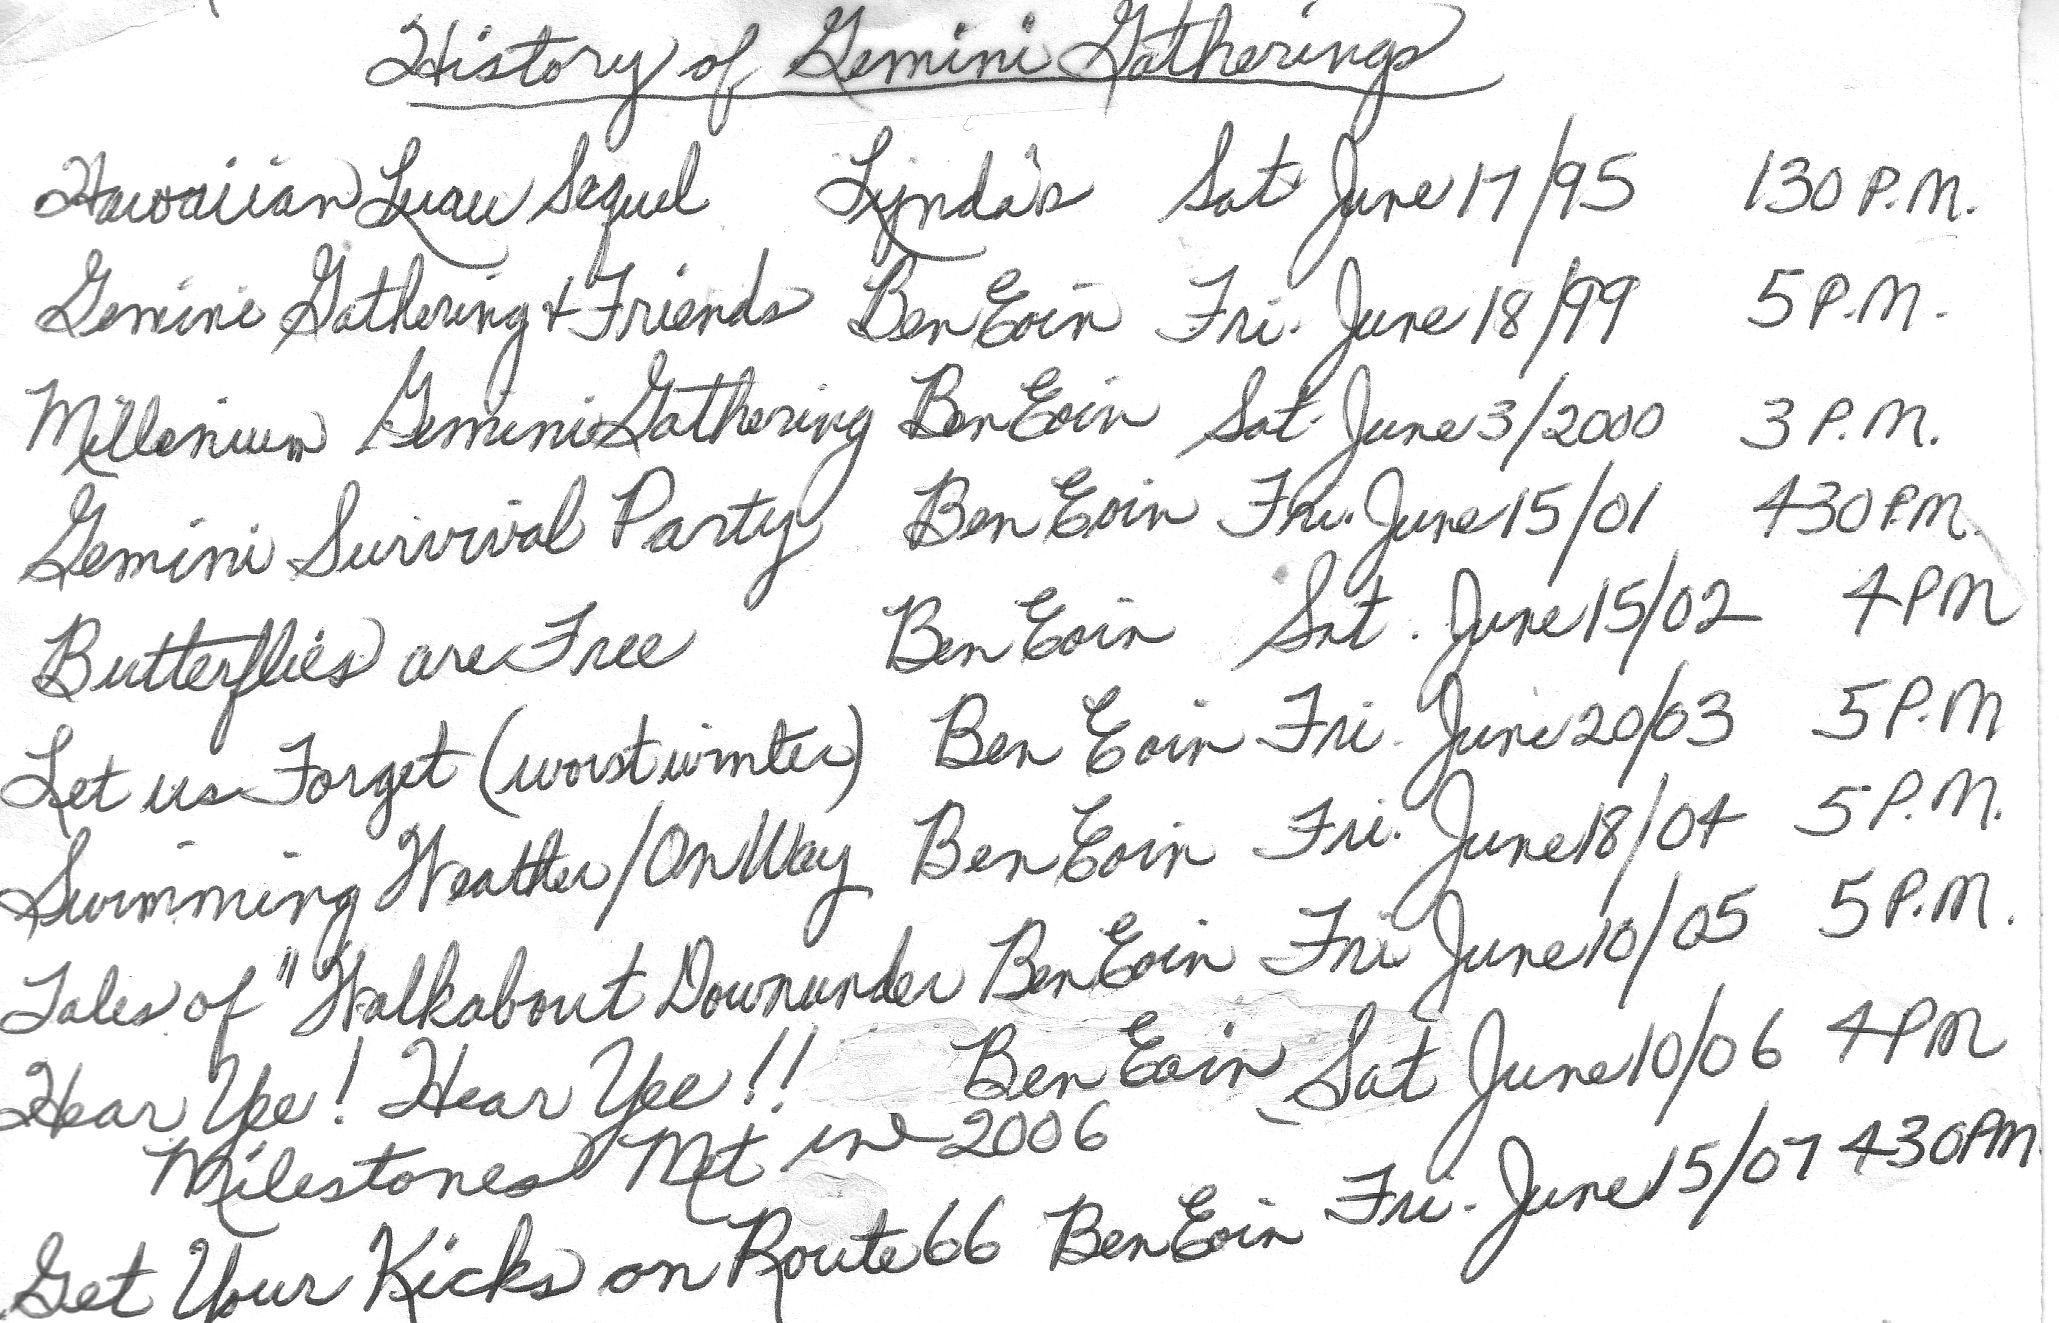 History of Gemini Gatherings
Hawaiian Luau Sequel Lynda's Sat June 17/95 130 P.M.
Gemini Gathering + Friends Ben Eoin Fri. June 18/99 5 P.M.
Millenium Gemini Gathering Ben Eoin Sat June 3/2000 3 P.M.
Gemini Survival Party Ben Eoin Fri. June 15/01 430 P.M.
Butterflies are Free Ben Eoin Sat. June 15/02 4 PM
Let us Forget (worst winter) Ben Eoin Fri. June 20/03 5 P.M
Swimming Weather/On Way Ben Eoin Fri. June 18/04 5 P.M.
Tales of "Walkabout Downunder Ben Eoin Fri June 10/05 5 P.M.
Hear Yee! Hear Yee!! Ben Eoin Sat June 10/06 4 PM
Milestones Met in 2006
Get Your Kicks on Route 66 Ben Eoin Fri. June 15/07 430 PM.